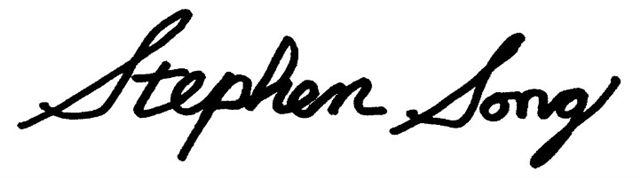 Stephen Song